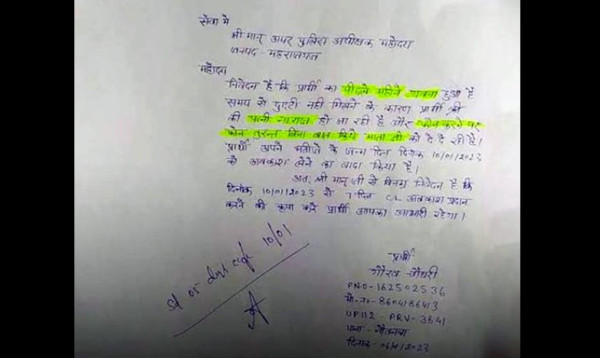 सेवा मे
श्री मान् अपर पुलिस अधीक्षक महोदय
जनपद - महराजगंज
महोदय
निवेदन है कि प्रार्थी का पीछले महिने हुआ है
समय से छुट्टी नही मिलने के कारण प्रार्थी की
की पत्नी नाराज हो जा रही है और फोन करने पर
फोन तुरन्त बिना बात किये माता जी को दे दे रही है।
प्रार्थी अपने भतीजे के जन्म दिन दिनांक 10/01/2023
को अवकाश लेने का वादा किया है।
अत. श्री मान् जी से विनम्र निवेदन है कि
दिनांक 10/01/2023 से 7 दिन C/L अवकाश प्रदान
करने की कृपा करें प्रार्थी आपका आभारी रहेगा।
10/01
प्रार्थी
गौरव चौधरी
PNO - 162502536
मो.न०- 8604186413
UP112 - PRV - 3841
थाना - नौतनवा
दिनांक - 06/01/2023